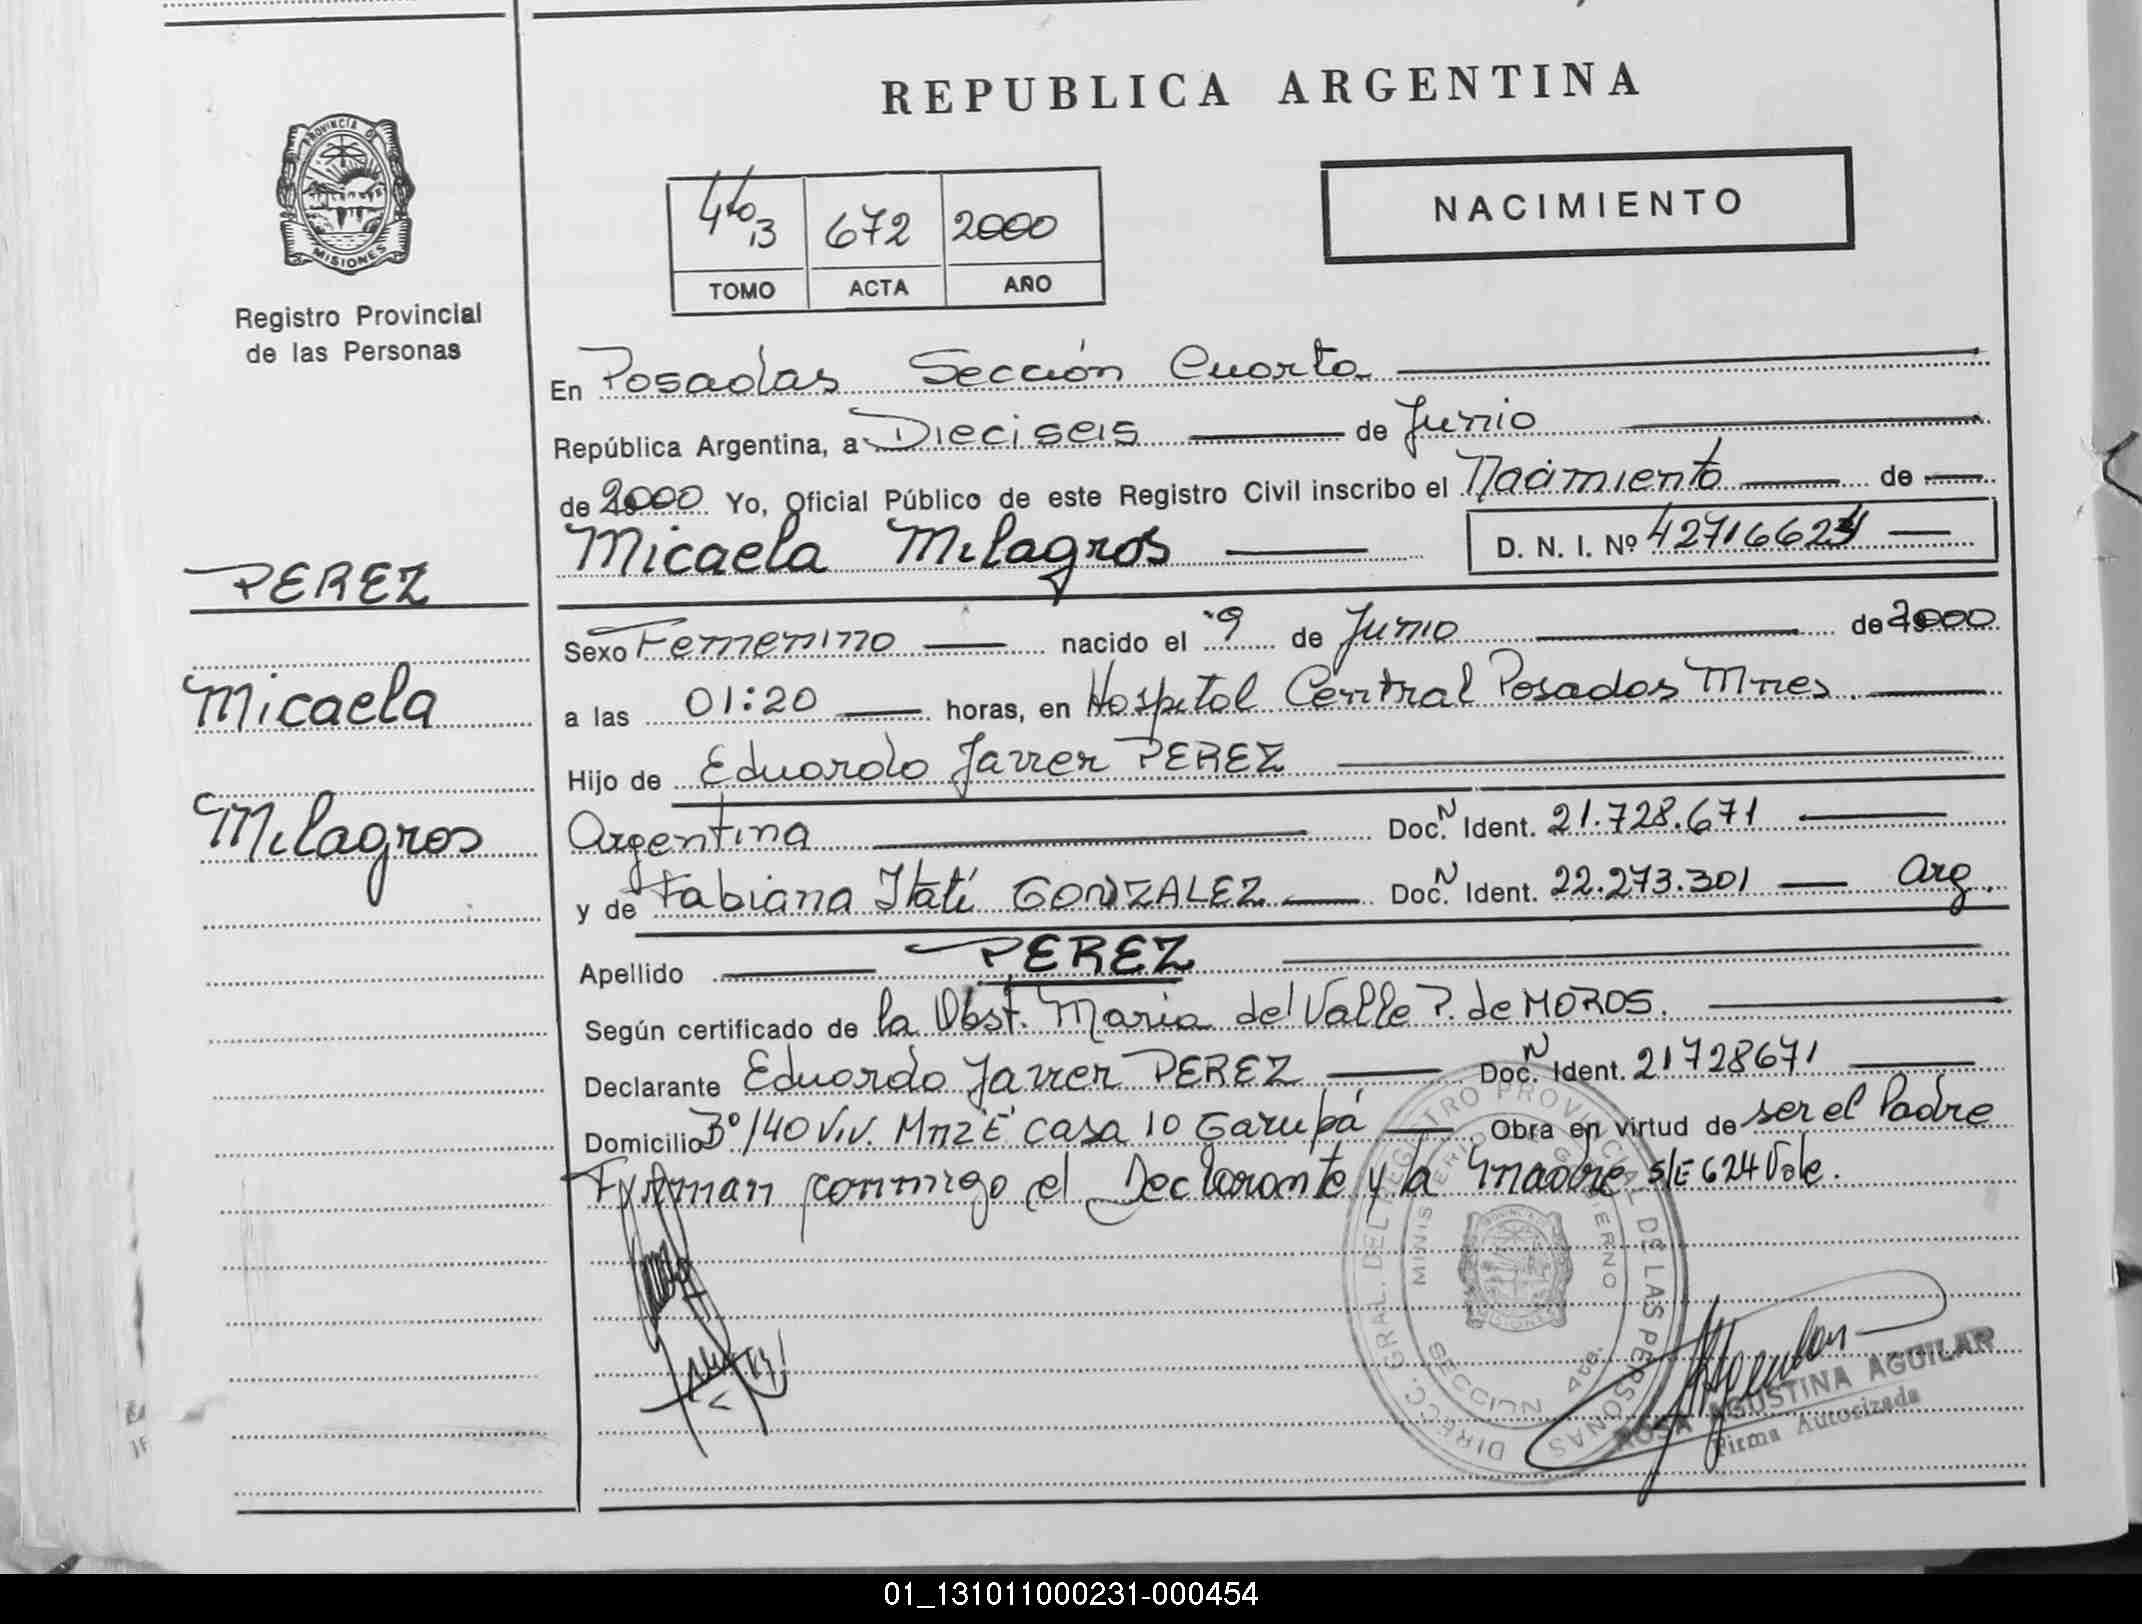 REPUBLICA ARGENTINA
PROVINCIA D
MISIONES
Registro Provincial
de las Personas
4to 13 672 2000
TOMO ACTA AÑO
NACIMIENTO
En Posadas Sección Cuarta
República Argentina, a Dieciseis de Junio
de 2000 Yo, Oficial Público de este Registro Civil inscribo el Nacimiento de
Micaela Milagros D. N. I. Nº 42716624
PEREZ
Micaela
Milagros
Sexo Femenino nacido el 9 de Junio de 2000
a las 01:20 horas, en Hospital Central Posadas Mnes
Hijo de Eduardo Javier PEREZ
Argentina Doc. N Ident. 21.728.671
y de Fabiana Itatí GONZALEZ Doc. N Ident. 22.273.301 Arg.
Apellido PEREZ
Según certificado de la Obst. Maria del Valle P. de MOROS.
Declarante Eduardo Javier PEREZ Doc. N Ident. 21728671
Domicilio Bº 140 Viv. Mnz E casa 10 Garupá Obra en virtud de ser el Padre
Firman conmigo el Declarante y la madre S/E 624 Vale.
DIRECC. GRAL. DEL REGISTRO PROVINCIAL DE LAS PERSONAS
MINISTERIO GOBIERNO
SECCION 4ta.
ROSA AGUSTINA AGUILAR
Firma Autorizada
01_131011000231-000454